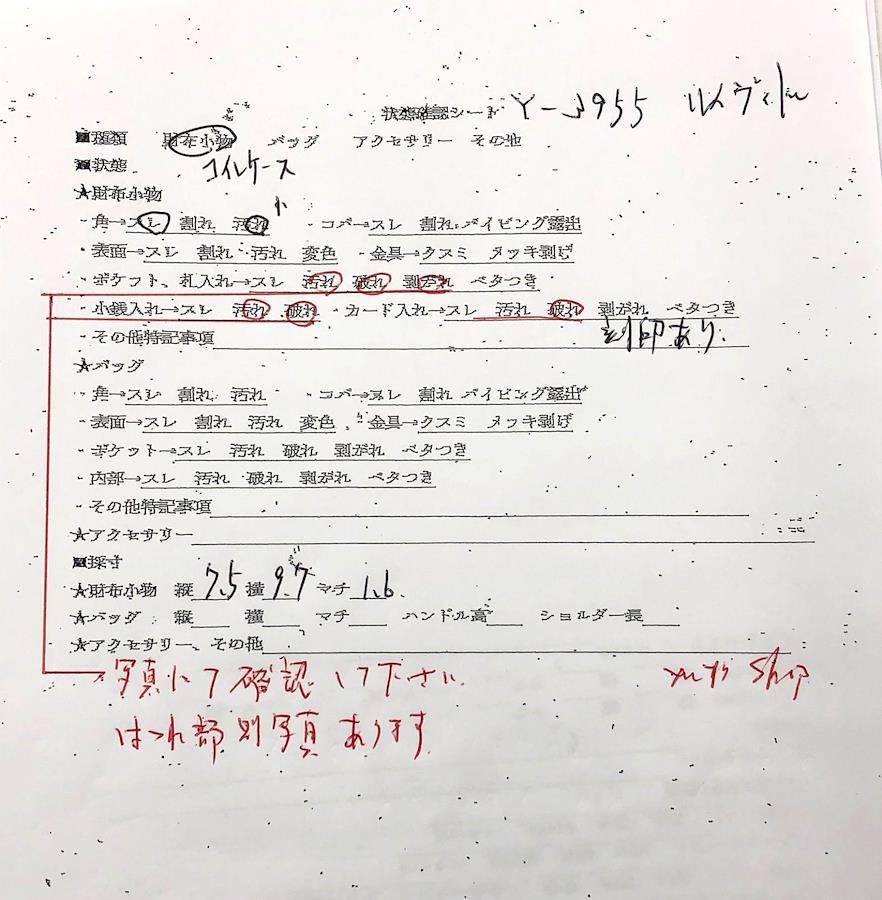 状態確認シート Y-3955 ルイヴィトン
■種類 財布小物 バッグ アクセサリー その他
■状態 コインケース
★財布小物
小
・角→スレ 割れ 汚れ ・コバ→スレ 割れ パイピング露出
・表面→スレ 割れ 汚れ 変色 ・金具→クスミ メッキ剥げ
・ポケット、札入れ→スレ 汚れ 破れ 剥がれ ベタつき
・小銭入れ→スレ 汚れ 破れ ・カード入れ→スレ 汚れ 破れ 剥がれ ベタつき
・その他特記事項 刻印あり
★バッグ
・角→スレ 割れ 汚れ ・コバ→スレ 割れ パイピング露出
・表面→スレ 割れ 汚れ 変色 ・金具→クスミ メッキ剥げ
・ポケット→スレ 汚れ 破れ 剥がれ ベタつき
・内部→スレ 汚れ 破れ 剥がれ ベタつき
・その他特記事項
★アクセサリー
■採寸
★財布小物 縦 7.5 横 9.7 マチ 1.6
★バッグ 縦 横 マチ ハンドル高 ショルダー長
★アクセサリー、その他
写真にて確認して下さい Shop
ほつれ部別写真あります